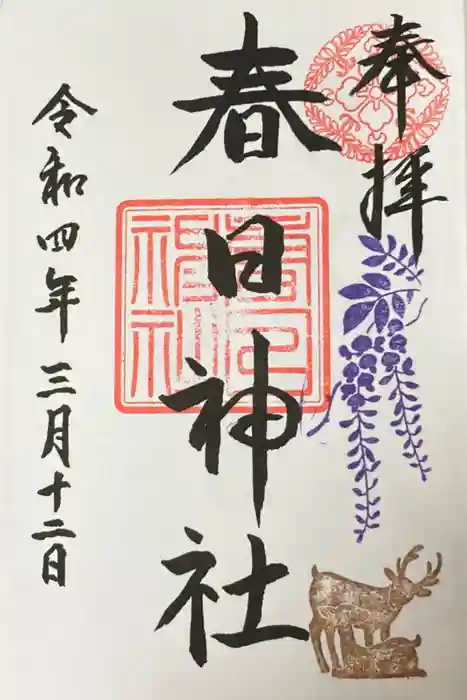 奉拝
春日神社
令和四年三月十二日